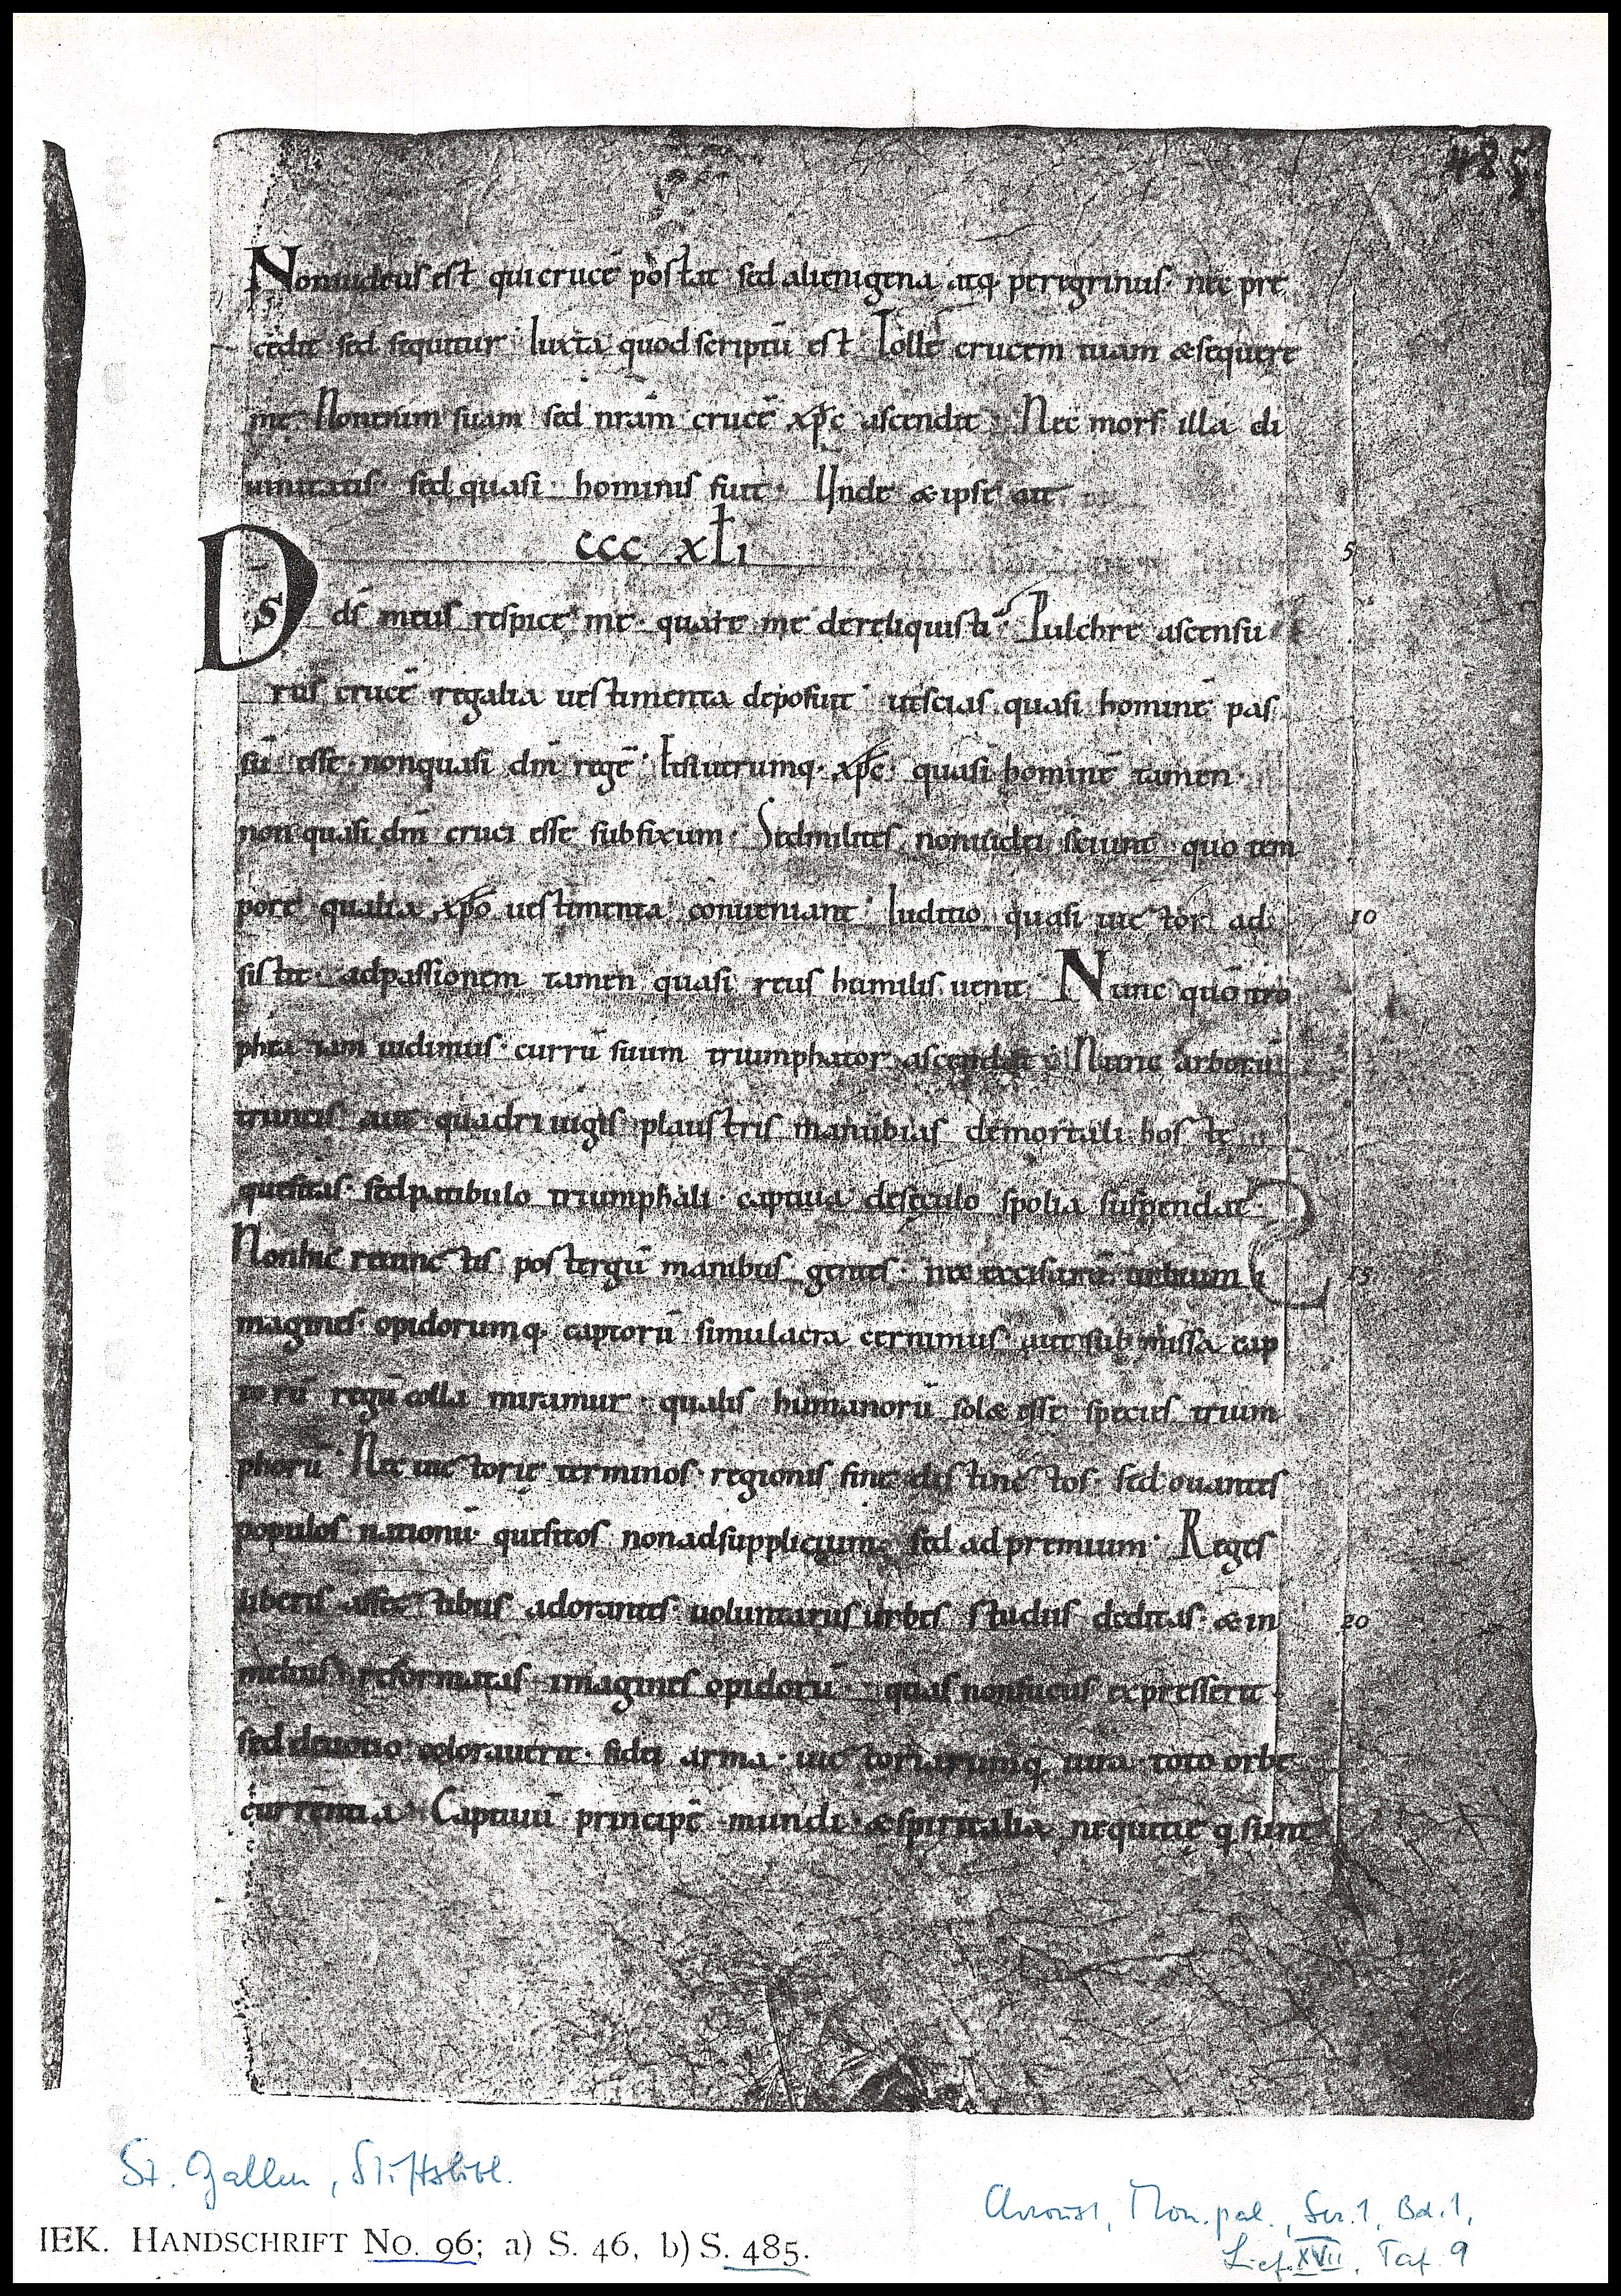 485
Noniudeus est qui crucē portat sed alienigena atq; peregrinus· nec pre
cedit sed sequitur Iuxta quod scriptū est Tolle crucem tuam &sequere
me Nonenim suam sed nrām crucē xp̄c ascendit Nec mors illa di
uinitatis sed quasi hominis fuit· Unde & ipse ait
CCC XLI 5
Ds ds̄ meus respice me· quare me dereliquisti Pulchre ascensu
rus crucē regalia uestimenta deposuit utscias quasi hominē pas
sū esse· nonquasi dm̄ regē· Etsiutrumq· xp̄c· quasi hominē tamen·
non quasi dm̄ cruci esse subfixum· Sedmilites noniudei sciunt quo tem
pore qualia xp̄o uestimenta conueniant Iuditio quasi uictor ad 10
sistit· adpassionem tamen quasi reus humilis uenit Nunc quō tro
phea iam uidimus· currū suum triumphator ascendat Nunc arborū
truncis aut quadriuigis plaustris manubias demortali hoste
quesitas· sedpatibulo triumphali· captiua deseculo spolia suspendat
Nonhic reuinctis postergū manibus gentes nec excisarū urbium i 15
magines· opidorumq; captorū simulacra cernimus aut submissa cap
torū regū colla miramur· qualis humanorū sol& esse species trium
phorū Nec uictorie terminos· regionis fine distinctos· sed ouantes
populos nationū quesitos nonadsupplicium sed ad premium· Reges
liberis affectibus adorantes uoluntariis urbes studiis deditas· & in 20
melius reformatas imagines opidorū quas nonfucus expresserit
sed deuotio colorauerit· fidei arma· uictoriarumq; iura toto orbe
currentia Captiuū principē mundi· &spiritalia nequitie q; sunt
St. Gallen, Stiftsbibl.
Chroust, Mon. pal., Ser. 1, Bd. 1,
Lief. XVII, Taf. 9
IEK. HANDSCHRIFT NO. 96; a) S. 46, b) S. 485.